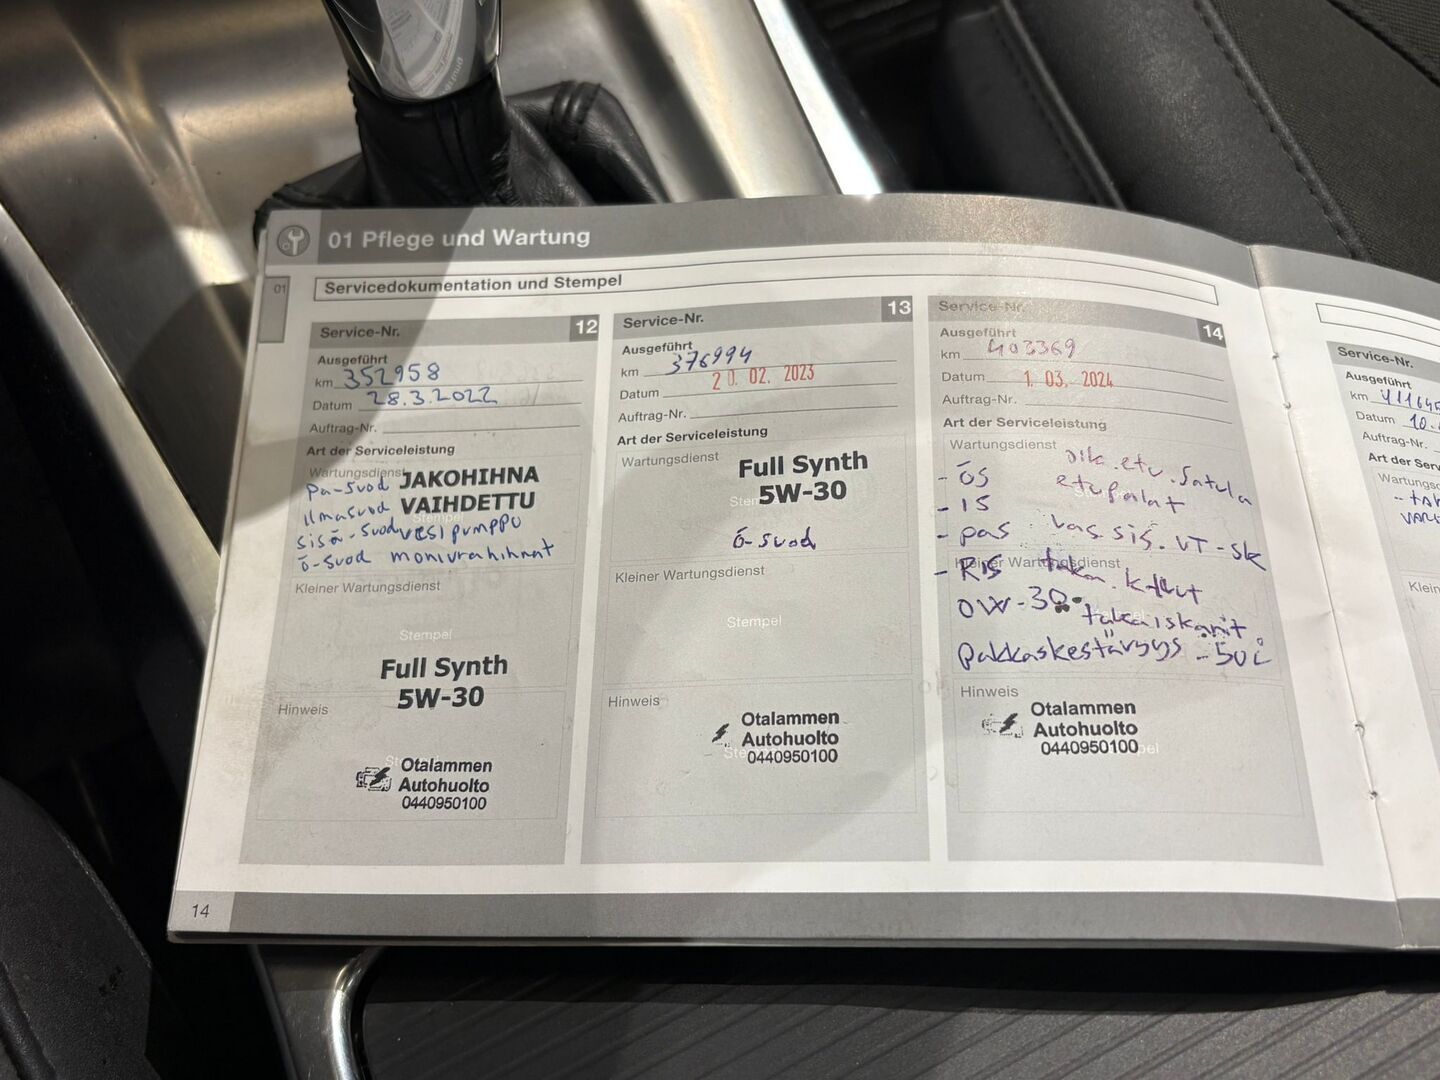 01 Pflege und Wartung
01
Servicedokumentation und Stempel
Service-Nr. 12
Ausgeführt
km 352958
Datum 28.3.2022
Auftrag-Nr.
Art der Serviceleistung
Wartungsdienst
JAKOHIHNA
VAIHDETTU
pa-suod
ilmasuod
sisä-suod vesipumppu
ö-suod moniurahihnat
Kleiner Wartungsdienst
Stempel
Full Synth
5W-30
Hinweis
Otalammen
Autohuolto
0440950100
Service-Nr. 13
Ausgeführt
km 376994
Datum 20. 02. 2023
Auftrag-Nr.
Art der Serviceleistung
Wartungsdienst
Full Synth
5W-30
ö-suod
Kleiner Wartungsdienst
Stempel
Hinweis
Otalammen
Autohuolto
0440950100
Service-Nr. 14
Ausgeführt
km 403369
Datum 1. 03. 2024
Auftrag-Nr.
Art der Serviceleistung
Wartungsdienst
oik. etu. satula
- ÖS etupalat
- IS
- pas vas. sis. VT-sk
Kleiner Wartungsdienst
- RIS takan.
0W-30 takaiskarit
pakkaskestävyys -50
Hinweis
Otalammen
Autohuolto
0440950100
14
Service-Nr.
Ausgeführt
km
Datum 10.
Auftrag-Nr.